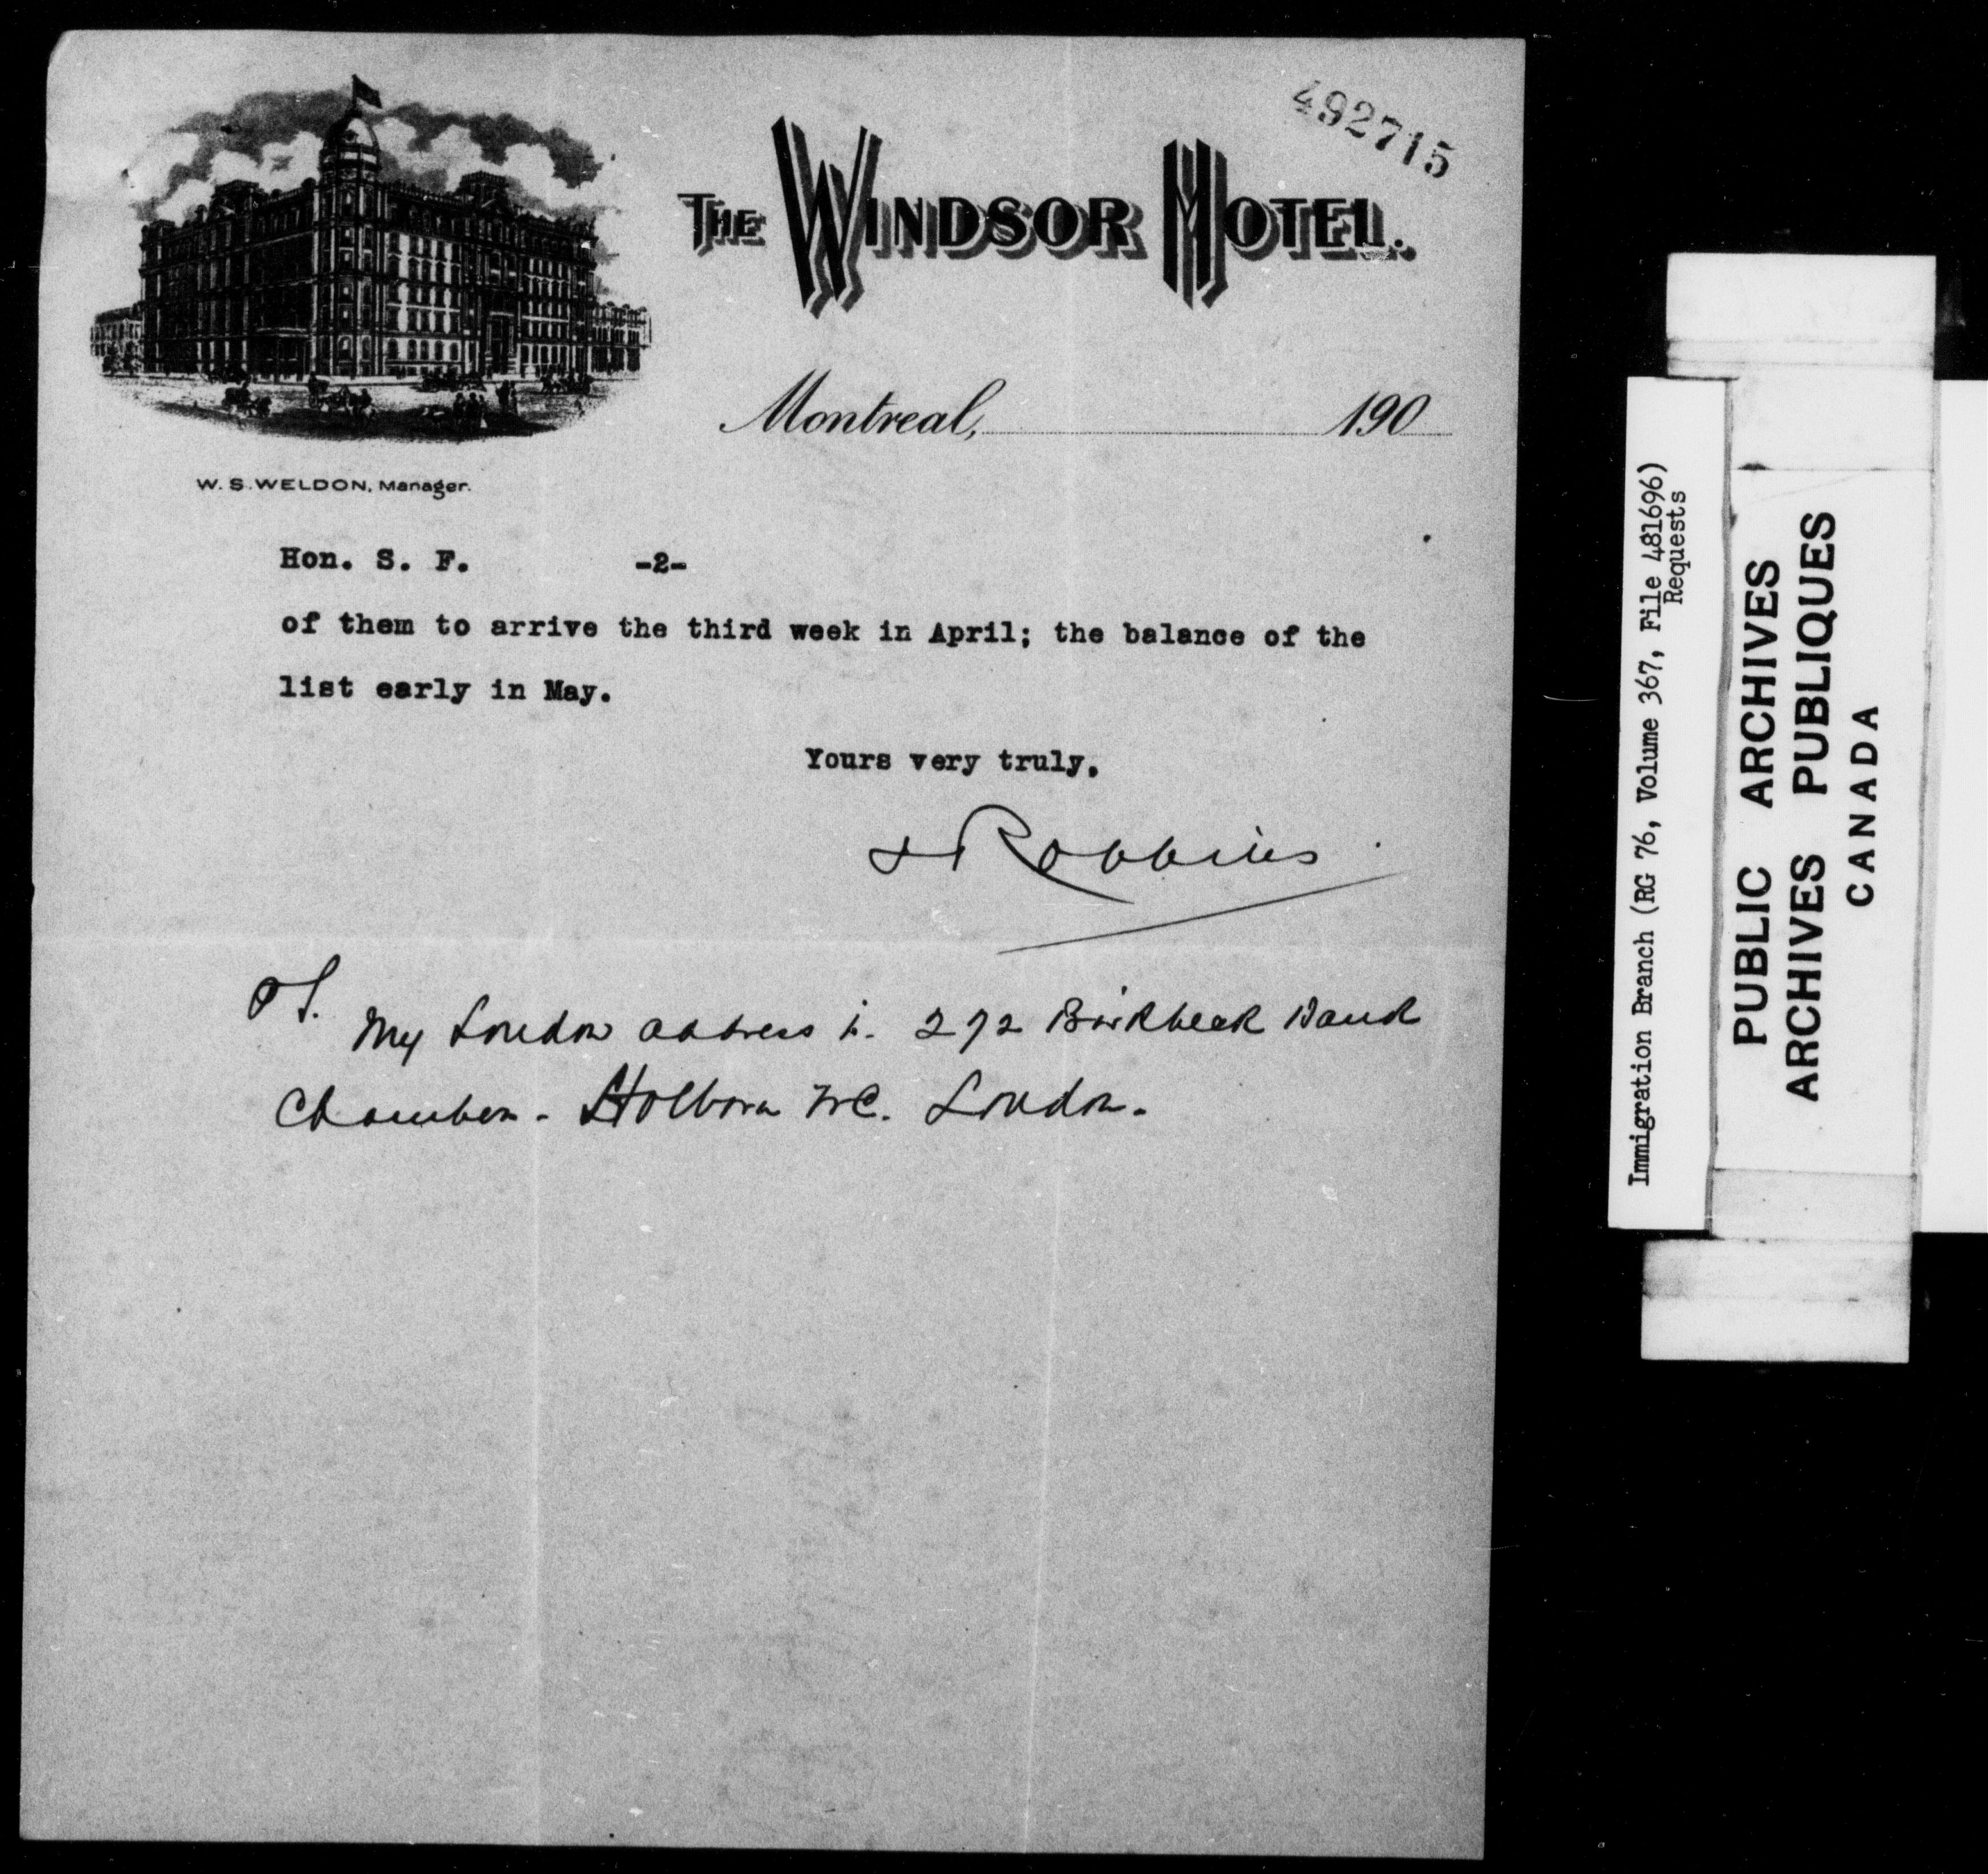 492715
THE WINDSOR HOTEL.
Montreal, 190
W. S. WELDON, Manager.
Hon. S. F. -2-
of them to arrive the third week in April; the balance of the
list early in May.
Yours very truly,
Robbins
PS.
My London address is. 272 Birkbeck Bank
Chambers - Holborn WC. London.
Immigration Branch (RG 76, Volume 367, File 481696)
Requests
PUBLIC ARCHIVES
ARCHIVES PUBLIQUES
CANADA